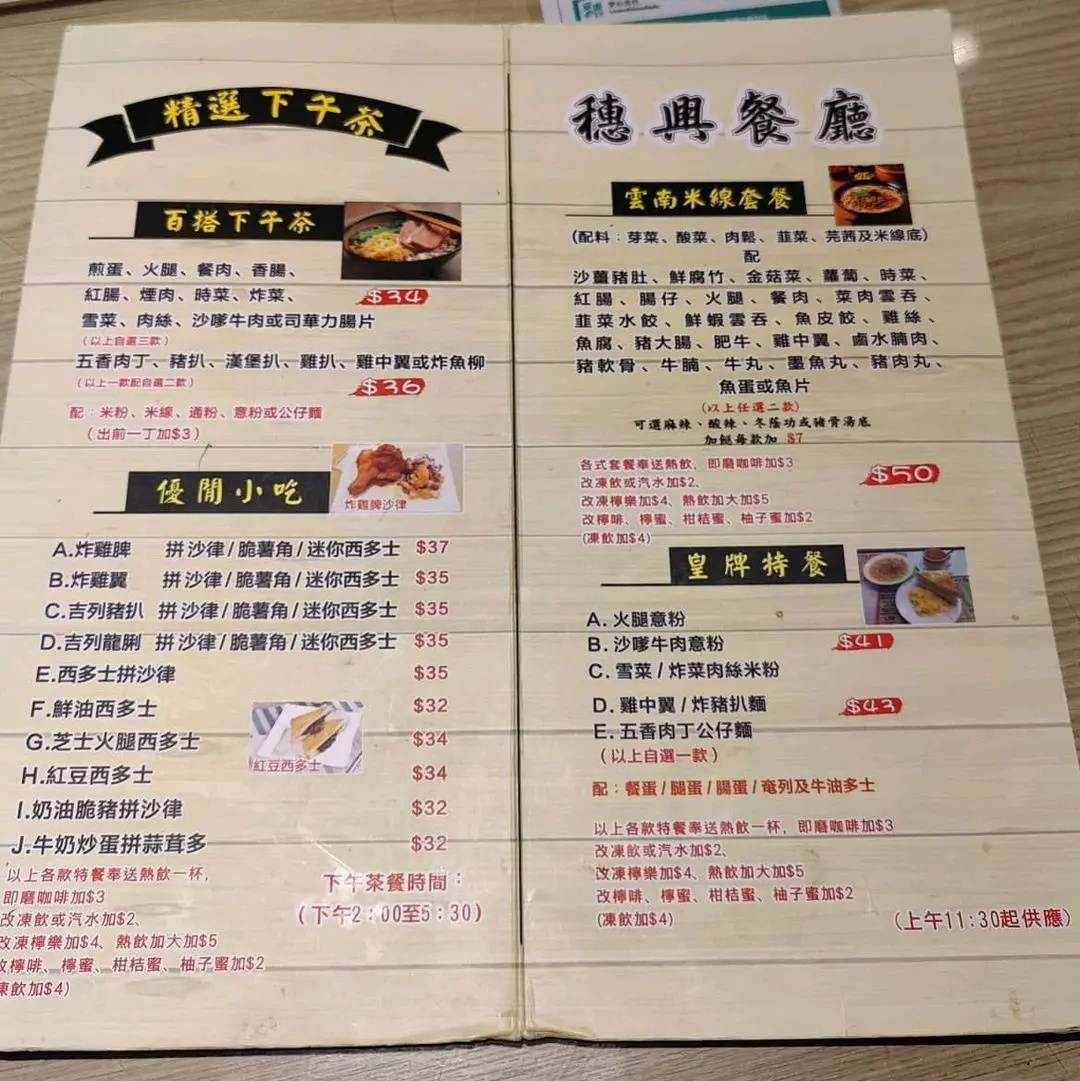 精選下午茶
百搭下午茶
煎蛋、火腿、餐肉、香腸、
紅腸、煙肉、時菜、炸菜、
$34
雪菜、肉絲、沙嗲牛肉或司華力腸片
(以上自選三款)
五香肉丁、豬扒、漢堡扒、雞扒、雞中翼或炸魚柳
(以上一款配自選二款)
$36
配：米粉、米線、通粉、意粉或公仔麵
(出前一丁加$3)
優閒小吃
炸雞脾沙律
A.炸雞脾 拼沙律/脆薯角/迷你西多士 $37
B.炸雞翼 拼沙律/脆薯角/迷你西多士 $35
C.吉列豬扒 拼沙律/脆薯角/迷你西多士 $35
D.吉列龍脷 拼沙律/脆薯角/迷你西多士 $35
E.西多士拼沙律 $35
F.鮮油西多士 $32
G.芝士火腿西多士 $34
H.紅豆西多士 $34
紅豆西多士
I.奶油脆豬拼沙律 $32
J.牛奶炒蛋拼蒜茸多 $32
以上各款特餐奉送熱飲一杯，
即磨咖啡加$3
改凍飲或汽水加$2、
改凍檸樂加$4、熱飲加大加$5
改檸啡、檸蜜、柑桔蜜、柚子蜜加$2
凍飲加$4)
下午茶餐時間：
(下午2：00至5：30)
穗興餐廳
雲南米線套餐
(配料：芽菜、酸菜、肉鬆、韮菜、芫茜及米線底)
配
沙薑豬肚、鮮腐竹、金菇菜、蘿蔔、時菜、
紅腸、腸仔、火腿、餐肉、菜肉雲吞、
韮菜水餃、鮮蝦雲吞、魚皮餃、雞絲、
魚腐、豬大腸、肥牛、雞中翼、鹵水腩肉、
豬軟骨、牛腩、牛丸、墨魚丸、豬肉丸、
魚蛋或魚片
(以上任選二款)
可選麻辣、酸辣、冬蔭功或豬骨湯底
加餸每款加 $7
各式套餐奉送熱飲，即磨咖啡加$3
改凍飲或汽水加$2、
改凍檸樂加$4、熱飲加大加$5
改檸啡、檸蜜、柑桔蜜、柚子蜜加$2
(凍飲加$4)
$50
皇牌特餐
A.火腿意粉
B.沙嗲牛肉意粉
$41
C.雪菜/炸菜肉絲米粉
D.雞中翼/炸豬扒麵
$43
E.五香肉丁公仔麵
(以上自選一款)
配：餐蛋/腿蛋/腸蛋/奄列及牛油多士
以上各款特餐奉送熱飲一杯，即磨咖啡加$3
改凍飲或汽水加$2、
改凍檸樂加$4、熱飲加大加$5
改檸啡、檸蜜、柑桔蜜、柚子蜜加$2
(凍飲加$4)
(上午11:30起供應)